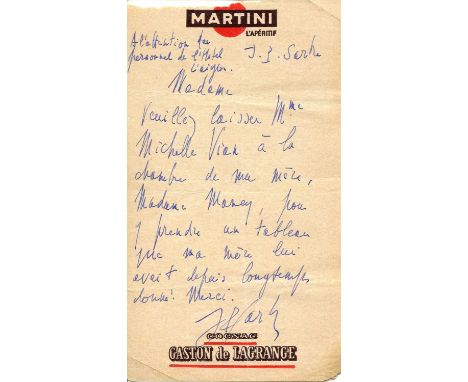 MARTINI
L'APÉRITIF
A l'attention du
J. P. Sartre
personnel de l'Hotel
l'aiglon.
Madame
Veuillez laisser Mme
Michelle Vian à la
chambre de ma mère,
Madame Mancy, pour
y prendre un tableau
que ma mère lui
avait depuis longtemps
donné. Merci.
JPSartre
COGNAC
GASTON de LAGRANGE